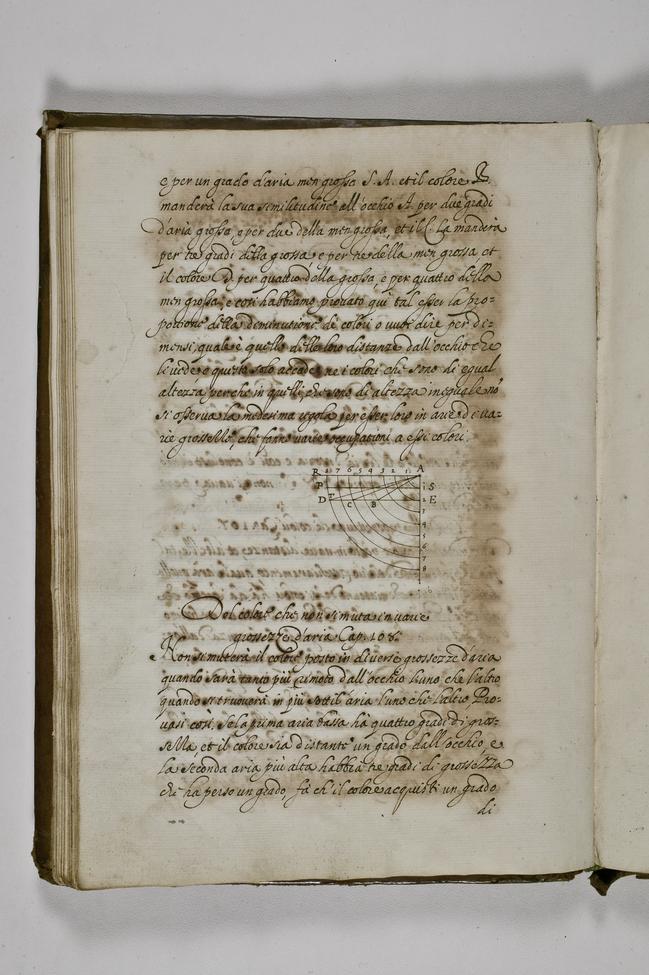 e per un grado d'aria men grossa S. A. et il colore B
manderà la sua similitudine all'occhio A per due gradi
d'aria grossa, e per due della men grossa, et il C. La manderà
per tre gradi della grossa, e per tre della men grossa, et
il colore D per quattro della grossa, e per quattro della
men grossa, e così habbiamo provato qui tal esser la pro=
portione della deminutione de colori o vuoi dire perdi=
menti, quale è quella delle loro distanze dall'occhio che
le vede e questo solo accade ne i colori che sono di equal
altezza perche in quelli che sono di altezza inequale nõ
si osserva la medesima regola per esser loro in arie di va=
rie grossezze, che fanno varie occupationi a essi colori.
R 8 7 6 5 4 3 2 1 A
P 1 S
D C B 2 E
3
4
5
6
7
8
Del colore che non si muta in varie
grossezze d'aria Cap. 108.
Non si muterà il colore posto in diverse grossezze d'aria
quando sarà tanto più rimoto dall'occhio l'uno che l'altro
quando si truoverà in più sottil aria l'uno che l'altro Pro=
vasi così, se la prima aria bassa ha quattro gradi di gros=
sezza, et il colore sia distante un grado dall'occhio, e
la seconda aria più alta habbia tre gradi di grossezza
che ha perso un grado, fà ch'il colore acquisti un grado
di